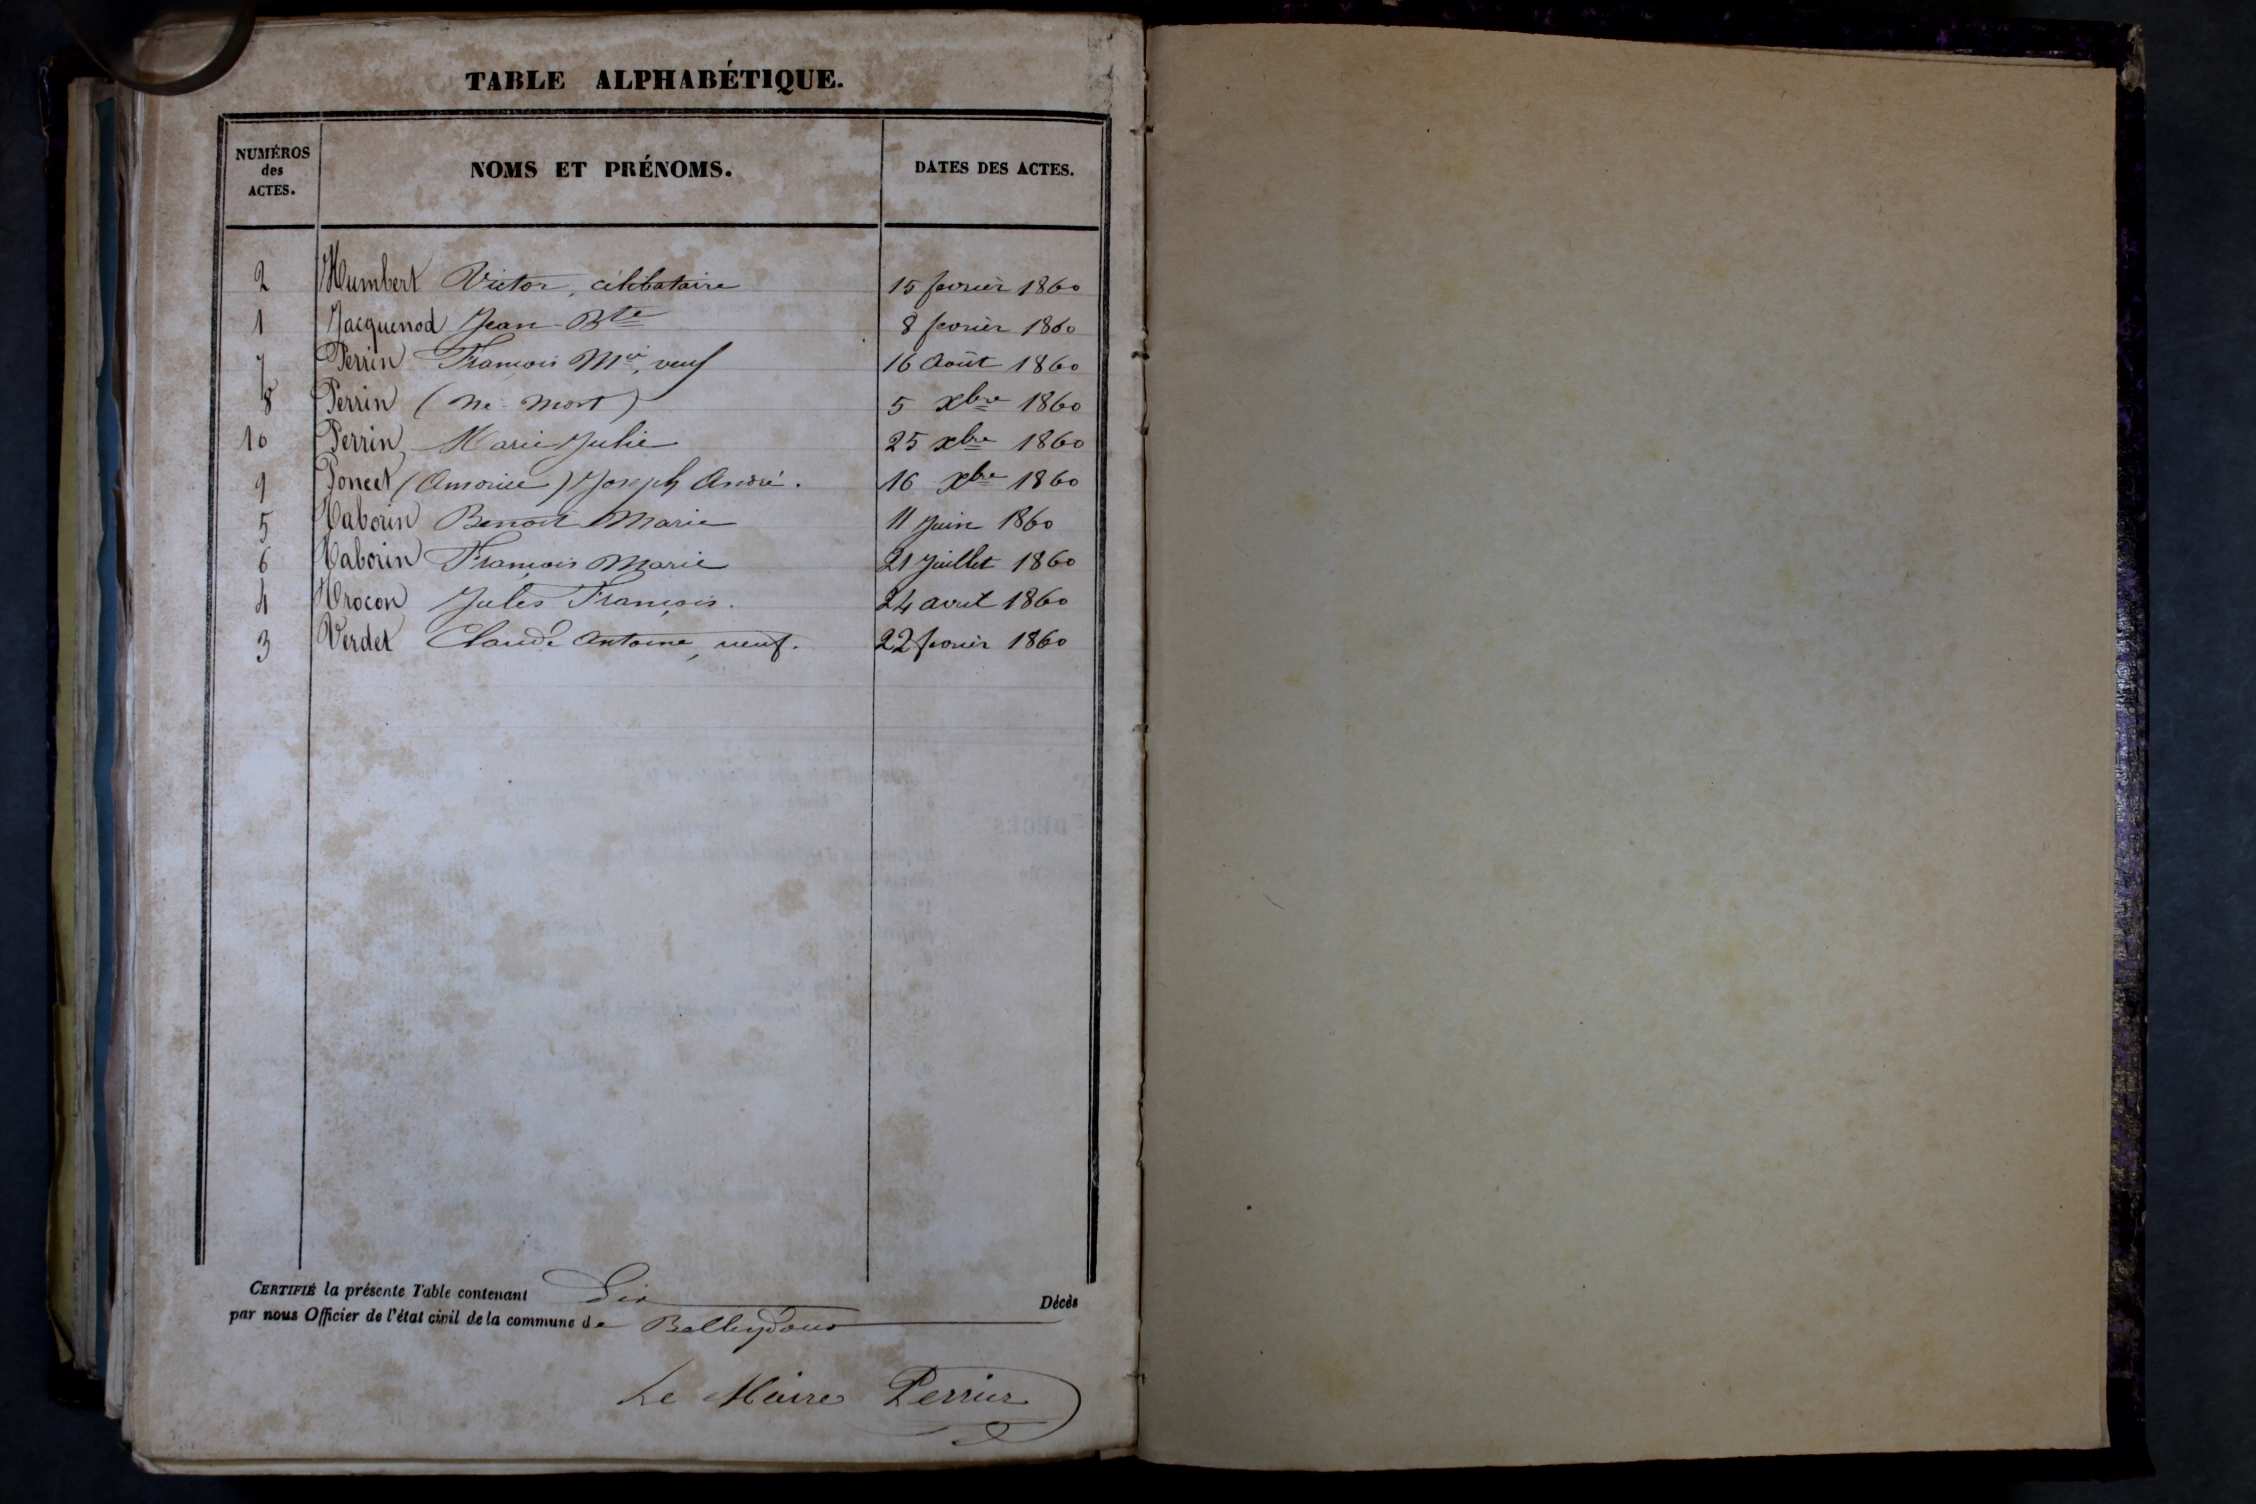 TABLE ALPHABÉTIQUE.
NUMÉROS des ACTES. NOMS ET PRÉNOMS. DATES DES ACTES.
2 Humbert Victor, célibataire 15 fevrier 1860
1 Jacquenod Jean-Bte 8 fevrier 1860
7 Perrin François Mie, veuf 16 Août 1860
8 Perrin (né-mort) 5 xbre 1860
10 Perrin Marie Julie 25 xbre 1860
9 Poncet Joseph André. 16 xbre 1860
5 Taborin Benoit Marie 11 Juin 1860
6 Taborin François Marie 21 Juillet 1860
4 Jules François. 24 avril 1860
3 Verdet Claude Antoine, veuf. 22 fevrier 1860
CERTIFIÉ la présente Table contenant Dix Décès
par nous Officier de l'état civil de la commune de Belleydoux
Le Maire Perrier